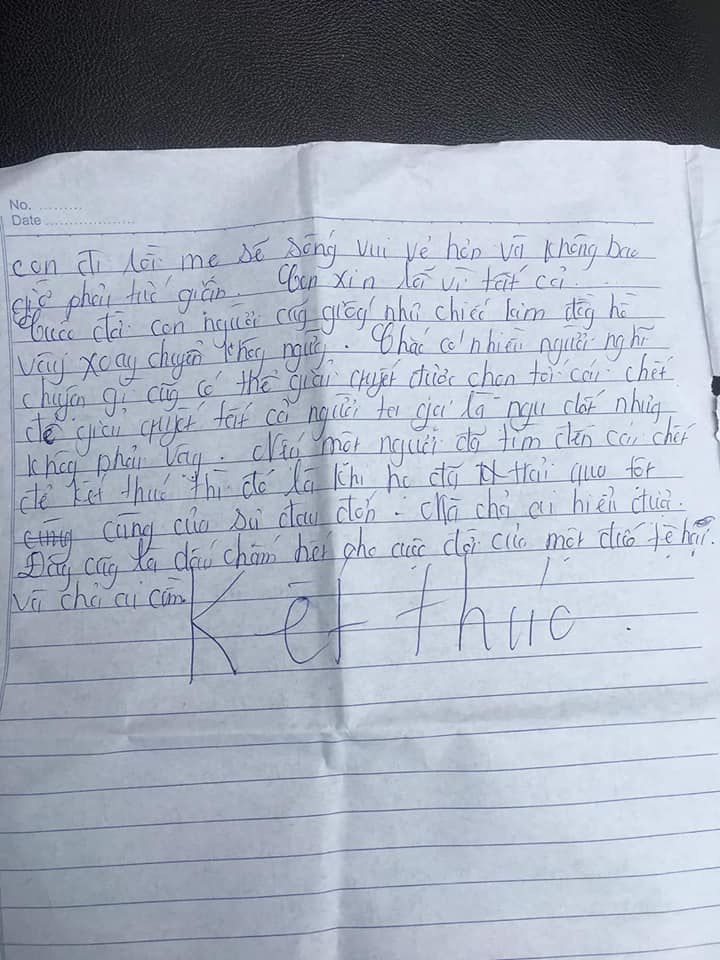 No. ..........
Date ...................
con đi rồi mẹ sẽ sống vui vẻ hơn và không bao
giờ phải tức giận. Con xin lỗi vì tất cả.
Cuộc đời con người cũg giống như chiếc kim đồg hồ
vậy xoay chuyển khôg ngừg. Chắc có nhiều người nghĩ
chuyện gì cũg có thể giải quyết được chọn tới cái chết
để giải quyết tất cả người ta gọi là ngu dốt nhưg
khôg phải vậy. một người đã tìm đến cái chết
để kết thúc thì đó là khi họ đã trải qua tột
cùng của sự đau đớn. Mà chả ai hiểu được.
Đây cũg là dấu chấm hết cho cuộc đời của một đứa tệ hại.
và chả ai cần
Kết thúc.